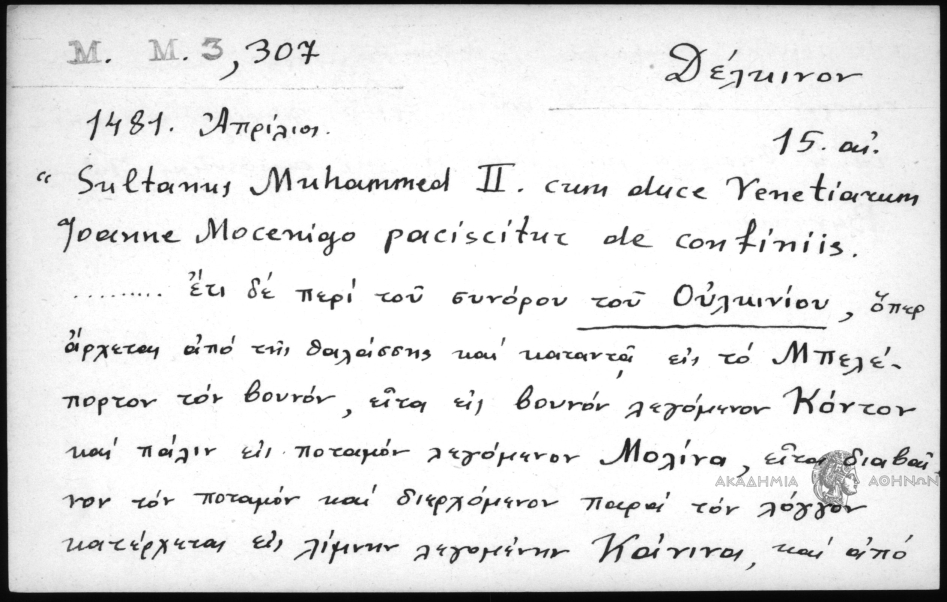 M. M. 3, 307
Δέλκινον
1481. Ἀπρίλιος.
15. αἰ.
“ Sultanus Muhammed II. cum duce Venetiarum
Joanne Mocenigo paciscitur de confiniis.
......... ἔτι δέ περί τοῦ συνόρου τοῦ Οὐλκινίου, ὅπερ
ἄρχεται ἀπό τῆς θαλάσσης καί καταντᾷ εἰς τό Μπελέ-
πορτον τόν βουνόν, εἶτα εἰς βουνόν λεγόμενον Κόντον
καί πάλιν εἰς ποταμόν λεγόμενον Μολίνα, εἶτα διαβαῖ-
νον τόν ποταμόν καί διερχόμενον παρά τόν λόγγον
κατέρχεται εἰς λίμνην λεγομένην Κάνινα, καί ἀπό
ΑΚΑΔΗΜΙΑ ΑΘΗΝΩΝ